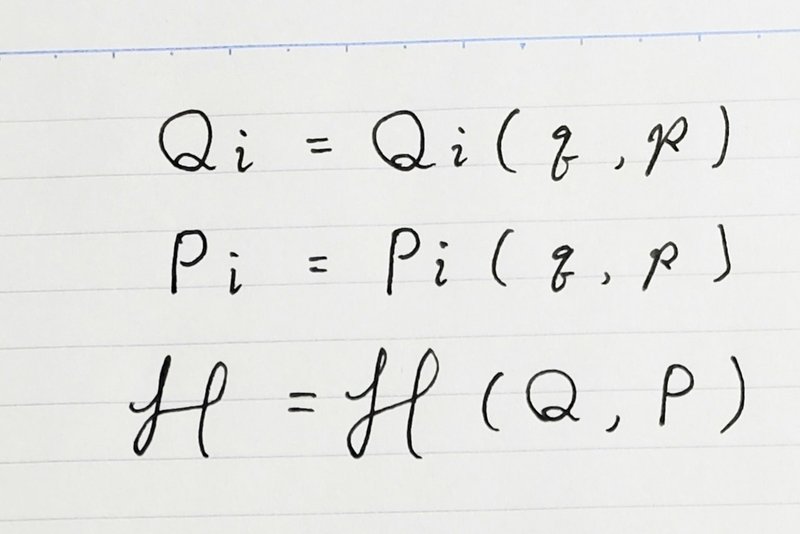 Qi = Qi ( q , p )
Pi = Pi ( q , p )
ℋ = ℋ ( Q , P )